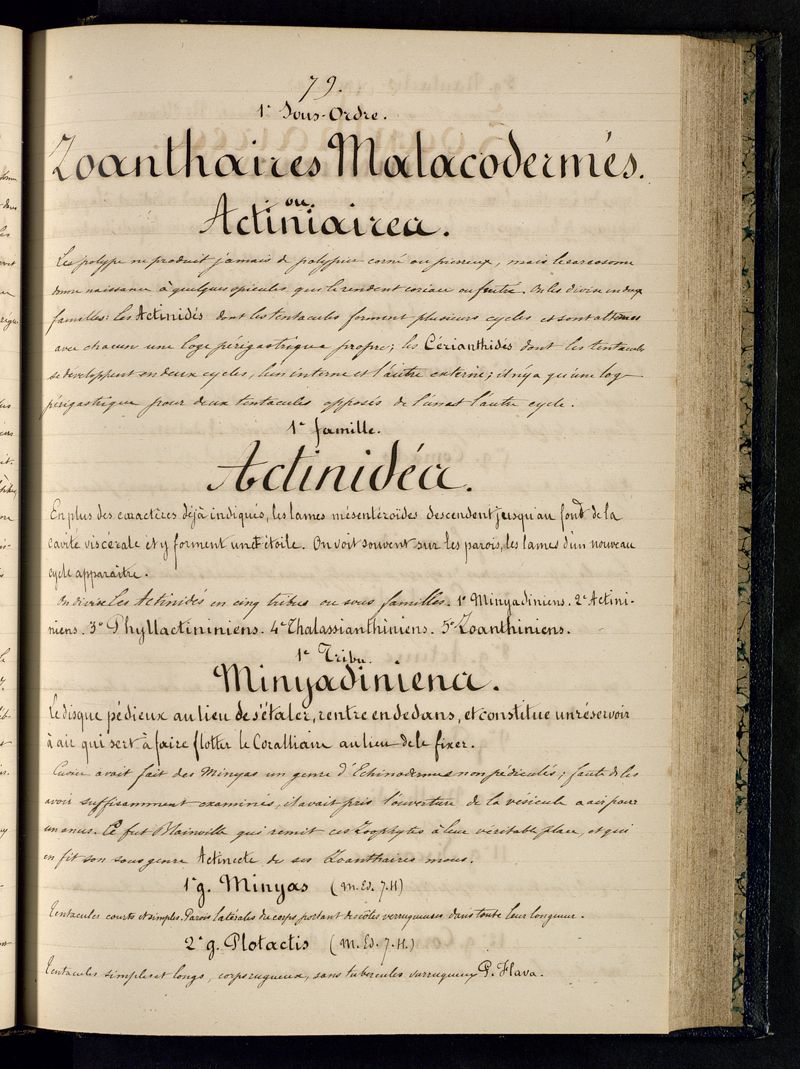 79.
1ᵉʳ Sous-Ordre.
Zoanthaires Malacodermés.
ou
Actiniairea.
Les polype ne produit jamais de polypier corné ou pierreux, mais le sarcosome
donne naissance à quelques spicules qui le rendent coriace ou feutré. On les divise en deux
familles: les Actinidés dont les tentacules forment plusieurs cycles et sont alternes
avec chacun une loge périgastrique propre; les Cérianthidés dont les tentacules
se développent en deux cycles, l'un interne et l'autre externe; il n'y a qu'une loge
périgastrique pour deux tentacules opposés de l'un et l'autre cycle.
1ᵉ famille.
Actinidéa.
En plus des caractères déjà indiqués, les lames mésentéroïdes descendent jusqu'au fond de la
cavité viscérale et y forment une étoile. On voit souvent sur les parois, les lames d'un nouveau
cycle apparaître.
On divise les Actinidés en cinq tribus ou sous familles. 1ᵒ Minyadiniens. 2ᵒ Actini-
niens. 3ᵒ Phyllactininiens. 4ᵒ Thalassianthiniens. 5ᵒ Zoanthiniens.
1ᵉ Tribu.
Minyadiniena.
Le disque pédieux au lieu de s'étaler, rentre en dedans, et constitue un réservoir
à air qui sert à faire flotter le Coralliaire au lieu de le fixer.
Cuvier avait fait des Minyas un genre d'Echinodermes non pédiculés; faute de les
avoir suffisamment examinés, il avait pris l'ouverture de la vésicule à air pour
un anus. Ce fut Blainville qui remit ces Zoophytes à leur véritable place, et qui
en fit son sous genre Actinecte de ses Zoanthaires mous.
1ᵉʳ g. Minyas (M. Ed. 7. H)
Tentacules courts et simples. Parois latérales du corps portant des côtes verruqueuses dans toute leur longueur.
2ᵉ g. Plotactis (M. Ed. 7. H.)
Tentacules simples et longs, corps rugueux, sans tubercules verruqueux P. Flava.